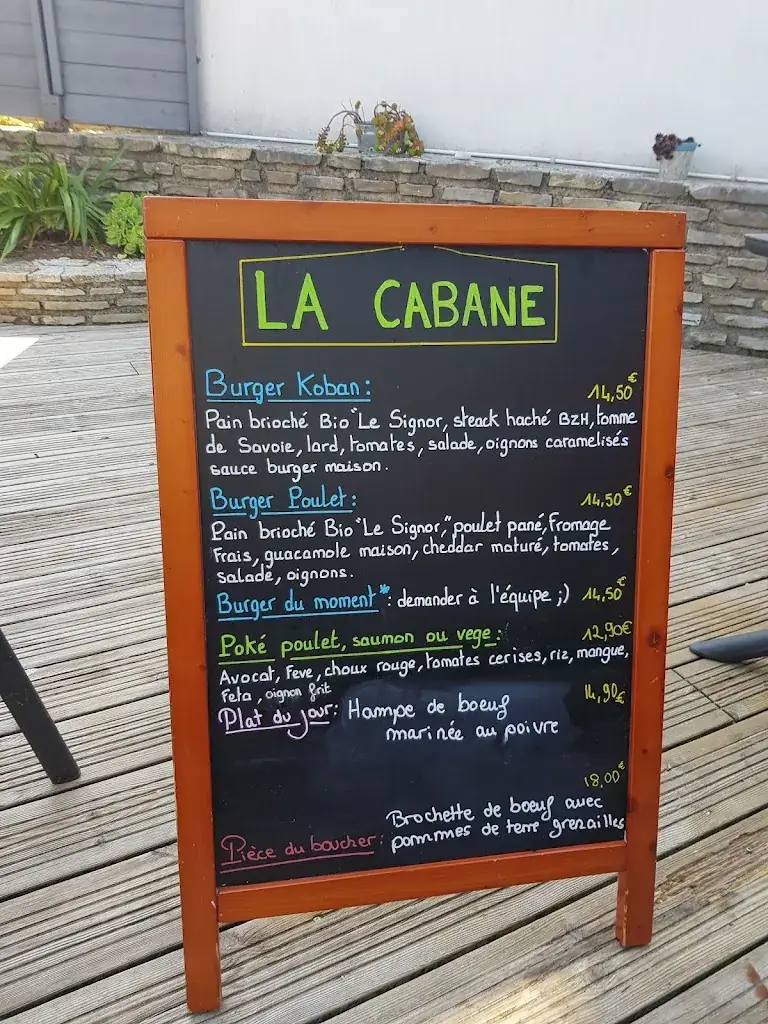 LA CABANE
Burger Koban: 14,50€
Pain brioché Bio "Le Signor, steack haché BZH, tomme
de Savoie, lard, tomates, salade, oignons caramelisés
sauce burger maison.
Burger Poulet: 14,50€
Pain brioché Bio "Le Signor," poulet pané, Fromage
Frais, guacamole maison, cheddar maturé, tomates,
salade, oignons.
Burger du moment*: demander à l'équipe ;) 14,50€
Poké poulet, saumon ou vege: 12,90€
Avocat, Feve, choux rouge, tomates cerises, riz, mangue,
Feta, oignon frit
Plat du jour: Hampe de boeuf 14,90€
marinée au poivre
18,00€
Brochette de boeuf avec
Pièce du boucher: pommes de terre grenailles